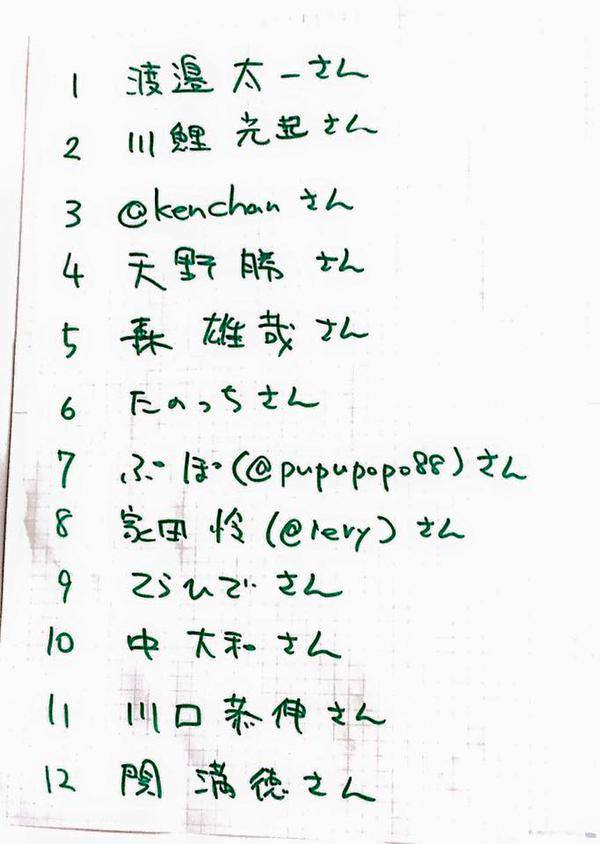 1 渡邉 太一さん
2 川鯉 光起さん
3 @kenchanさん
4 天野 勝 さん
5 森 雄哉さん
6 たのっちさん
7 ぷぽ(@pupupopo88)さん
8 家田 怜(@revy)さん
9 てらひで さん
10 中 大和さん
11 川口 恭伸さん
12 関 満徳さん